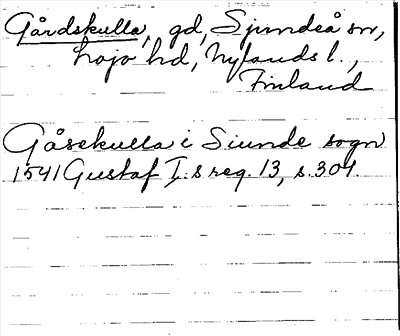 Gårdskulla, gd, Sjundeå sn,
Lojo hd, Nylands l.,
Finland
Gåsekulla i Siunde sogn
1541 Gustaf I:s reg. 13, s. 301.